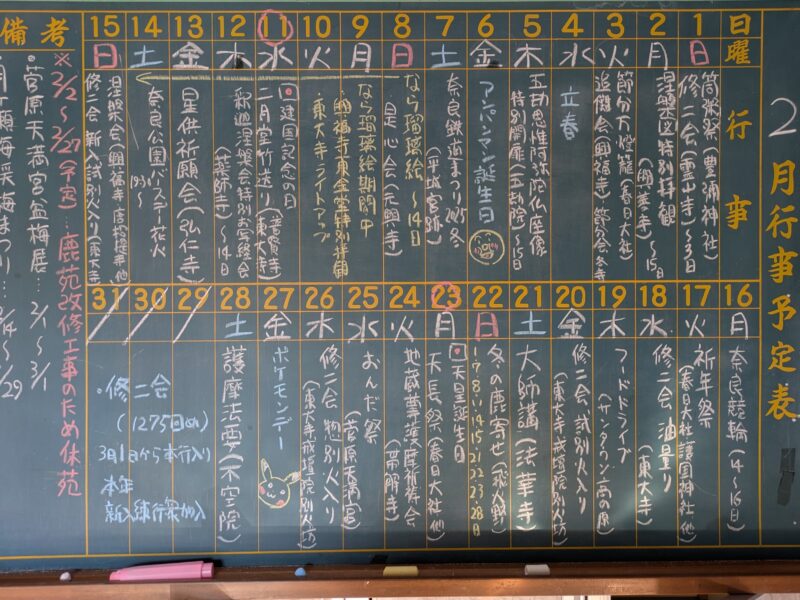 2月行事予定表
日
曜
行
事
1
日
筒粥祭(豊浦神社)
修二会(霊山寺)〜3日
2
月
涅槃図特別拝観
(興善寺)〜15日
3
火
節分万燈籠(春日大社)
追儺会(興福寺) 節分会 各寺
4
水
立春
5
木
五劫思惟阿弥陀仏坐像
特別開扉(五劫院)〜15日
6
金
アンパンマン誕生日
7
土
奈良鉄道まつり2025冬
(平城宮跡)
8
日
なら瑠璃絵 〜14日
是心会(元興寺)
9
月
なら瑠璃絵期間中
興福寺東金堂特別拝観
10
火
東大寺ライトアップ
11
水
建国記念の日
二月堂竹送り(東大寺)
12
木
釈迦涅槃会特別写経会
(薬師寺) 〜14日
13
金
星供祈願会(弘仁寺)
14
土
奈良公園バースデー花火
19:35〜
15
日
涅槃会(興福寺・唐招提寺他)
修二会 新入試別火入り(東大寺)
16
月
奈良競輪(14〜16日)
17
火
祈年祭
(春日大社・護国神社他)
18
水
修二会 油量り
(東大寺)
19
木
フードドライブ
(サンタウン高の原)
20
金
修二会 試別火入り
(東大寺戒壇院別火坊)
21
土
大師講(法華寺)
22
日
冬の鹿寄せ(飛火野)
1・7・8・11・14・15・21・22・23・28日
23
月
天皇誕生日
天長祭(春日大社他)
24
火
地蔵尊護摩祈祷会
(帯解寺)
25
水
おんだ祭
(菅原天満宮)
26
木
修二会 惣別火入り
(東大寺戒壇院別火坊)
27
金
ポケモンデー
28
土
護摩法要(不空院)
29
30
31
・修二会
(1275回め)
3月1日から本行入り
本年
新入練行衆加入
備考
※2/2〜2/27(予定)…鹿苑改修工事のため休苑
・菅原天満宮盆梅展…2/1〜3/1